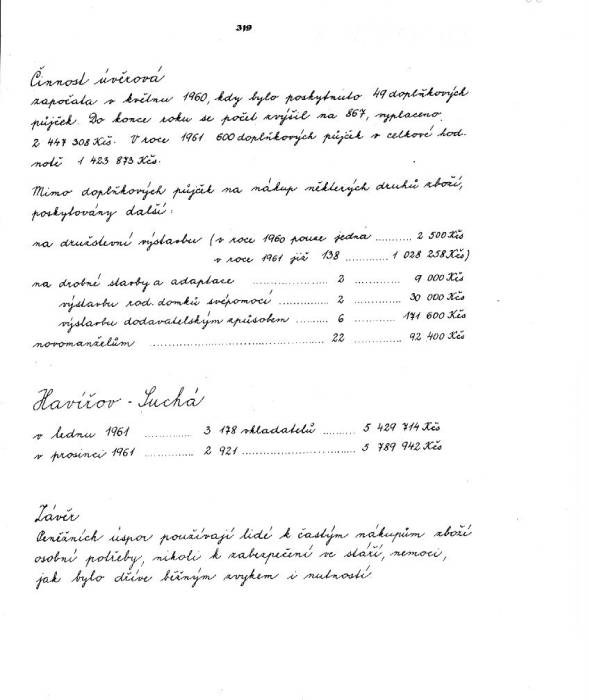 319
Činnost úvěrová
započata v květnu 1960, kdy bylo poskytnuto 49 doplňkových
půjček. Do konce roku se počet zvýšil na 867, vyplaceno
2 447 308 Kčs. V roce 1961 600 doplňkových půjček v celkové hod-
notě 1 423 873 Kčs.
Mimo doplňkových půjček na nákup některých druhů zboží,
poskytovány další:
na družstevní výstavbu (v roce 1960 pouze jedna ........... 2 500 Kčs
v roce 1961 již 138 ............. 1 028 258 Kčs)
na drobné stavby a adaptace ...................... 2 ............... 9 000 Kčs
výstavbu rod. domků svépomocí .............. 2 .............. 30 000 Kčs
výstavbu dodavatelským způsobem ......... 6 ............. 171 600 Kčs
novomanželům ................................... 22 ............ 92 400 Kčs
Havířov - Suchá
v lednu 1961 ............. 3 178 vkladatelů ......... 5 429 714 Kčs
v prosinci 1961 ............. 2 921 .............................. 5 789 942 Kčs
Závěr
Peněžních úspor používají lidé k častým nákupům zboží
osobní potřeby, nikoli k zabezpečení ve stáří, nemoci,
jak bylo dříve běžným zvykem i nutností